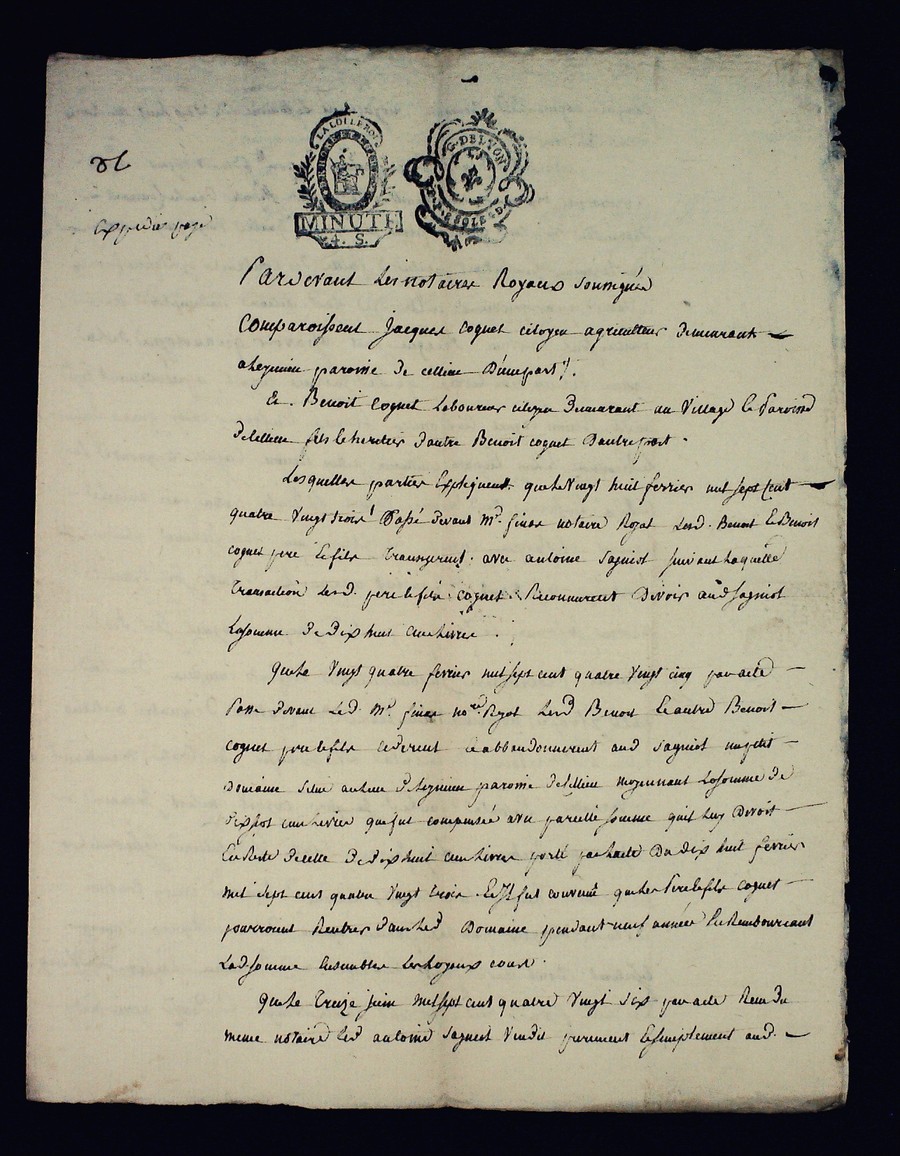 LA LOI LE ROI
MINUTE
4. S.
G. DE LYON
expedié page
Pardevant Les notaires Royaux soussignés
Comparoissent Jacques Cognet citoyen agriculteur demeurant
a Leynieu paroisse de cellieu D'une part /.
Et. Benoit Cognet Laboureur citoyen demeurant au Village & Paroisse
de Cellieu fils & heritier d'autre Benoit Cognet D'autre part.
Lesquelles parties Expliquent que le Vingt huit fevrier mil sept Cent
quatre Vingt trois Passé devant Me. finas notaire Royal Lesd. Benoit & Benoit
cognet pere & fils transigerent avec antoine sagniol suivant Laquelle
transaction Lesd. pere & fils cognet Reconnurent Devoir aud sagniol
La somme De Dix huit Cent Livres.
Que le Vingt quatre fevrier mil sept cent quatre Vingt cinq par acte
Passé devant Led. Me. finas nore. Royal Lesd Benoit & autre Benoit
cognet pere & fils cederent & abbandonnerent aud sagniol un petit
domaine situé au lieu de Leynieu paroisse de Cellieu moyennant La somme de
dix sept cent Livres que fut compensée avec pareille somme qu'il Luy Devoit
En Reste de celle De Dix huit cent Livres porté par Lacte Du dix huit fevrier
mil sept cent quatre Vingt trois. Et Il fut convenu que Les Pere & fils Cognet
pourroient Rentrer dans Led Domaine pendant neuf années En Remboursant
Lad somme Ensemble Les Loyaux couts.
Que le treize juin mil sept cent quatre Vingt six par acte Recu du
meme notaire Led antoine sagniol Vendit purement & simplement aud.